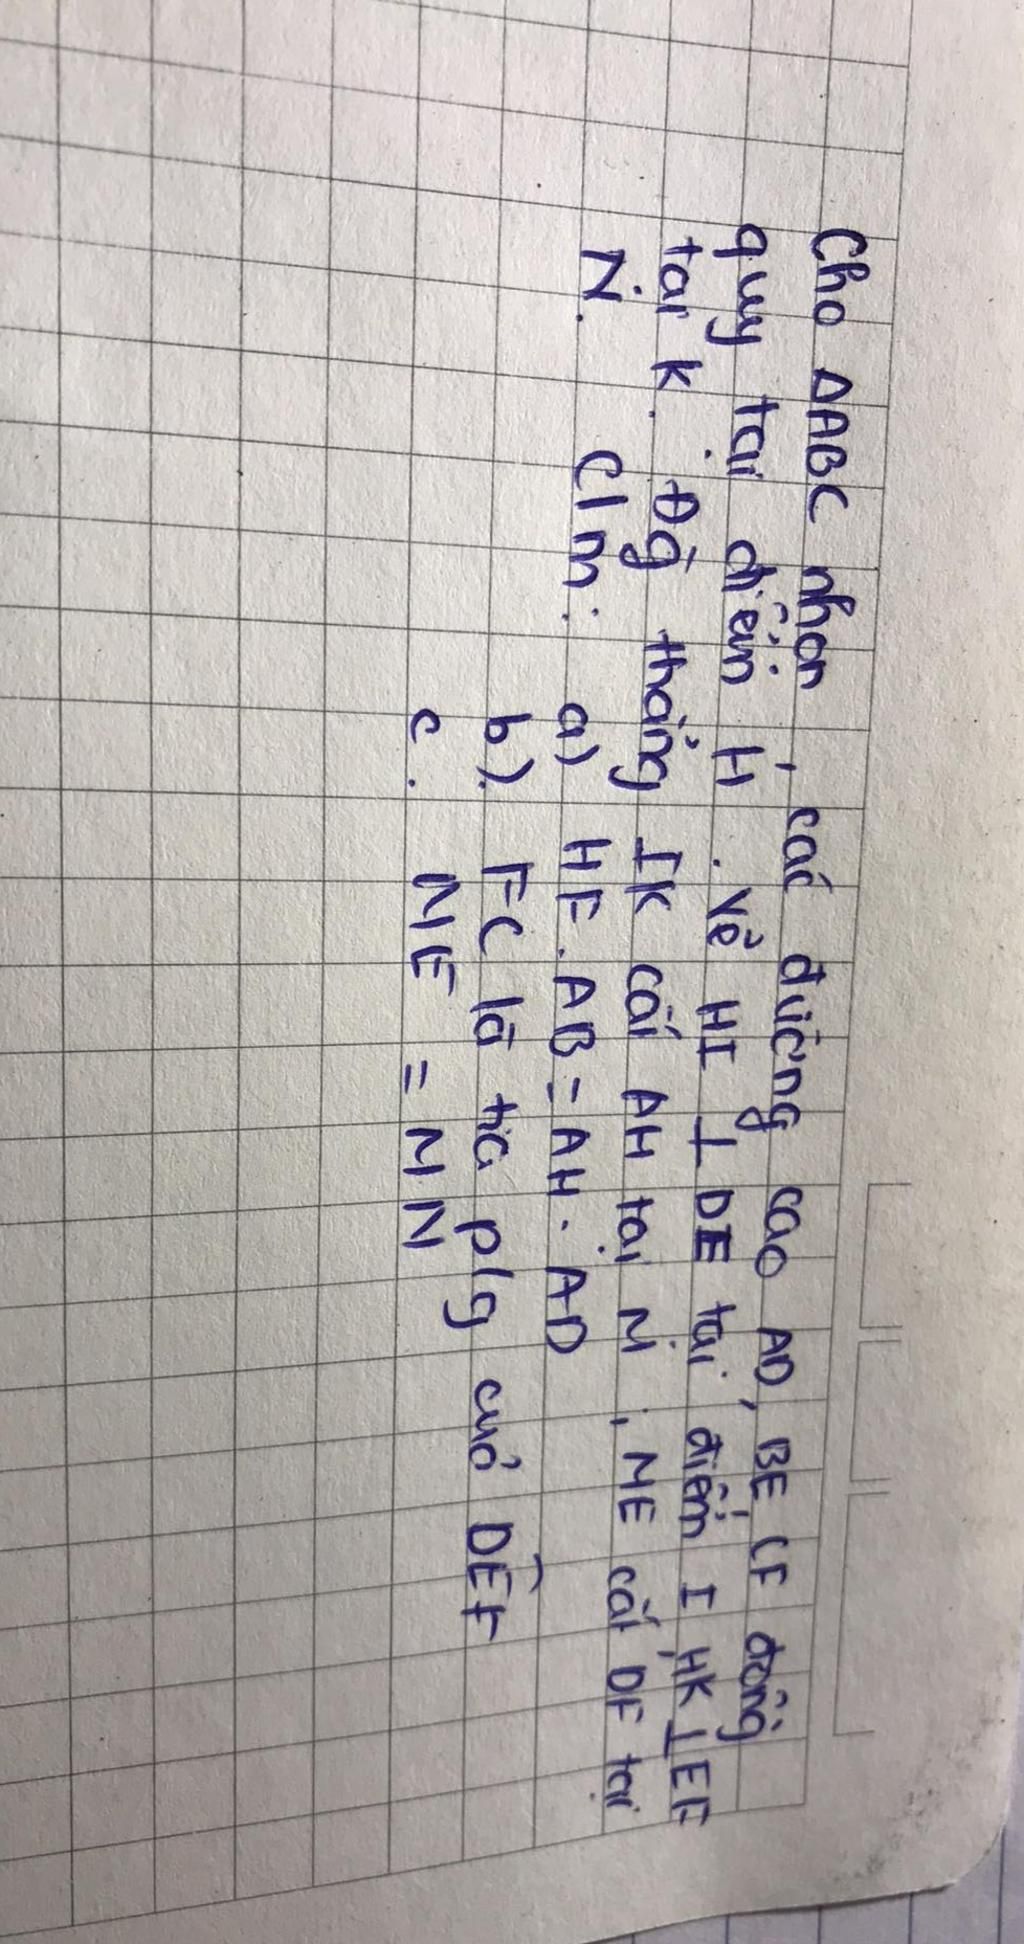 Cho ΔABC nhọn, các đường cao AD, BE, CF đồng
quy tại điểm H. Vẽ HI ⊥ DE tại điểm I, HK ⊥ EF
tại K. Đg thẳng IK cắt AH tại M, ME cắt DF tại
N. C/m: a) HF.AB = AH.AD
b). FC là tia p/g của DEF
c. ME = MN